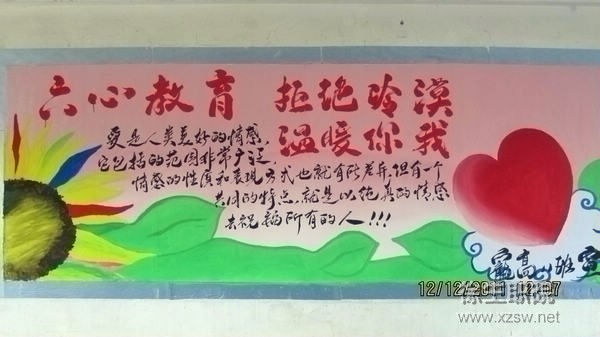 六心教育 拒绝冷漠
温暖你我
爱是人类美好的情感,
它包括的范围非常广泛,
情感的性质和表现方式也就有所差异,但有一个
共同的特点,就是以纯真的情感
去祝福所有的人!!!
高 班宣
12/12/2011 12:07
徐工职院
www.xzsw.net